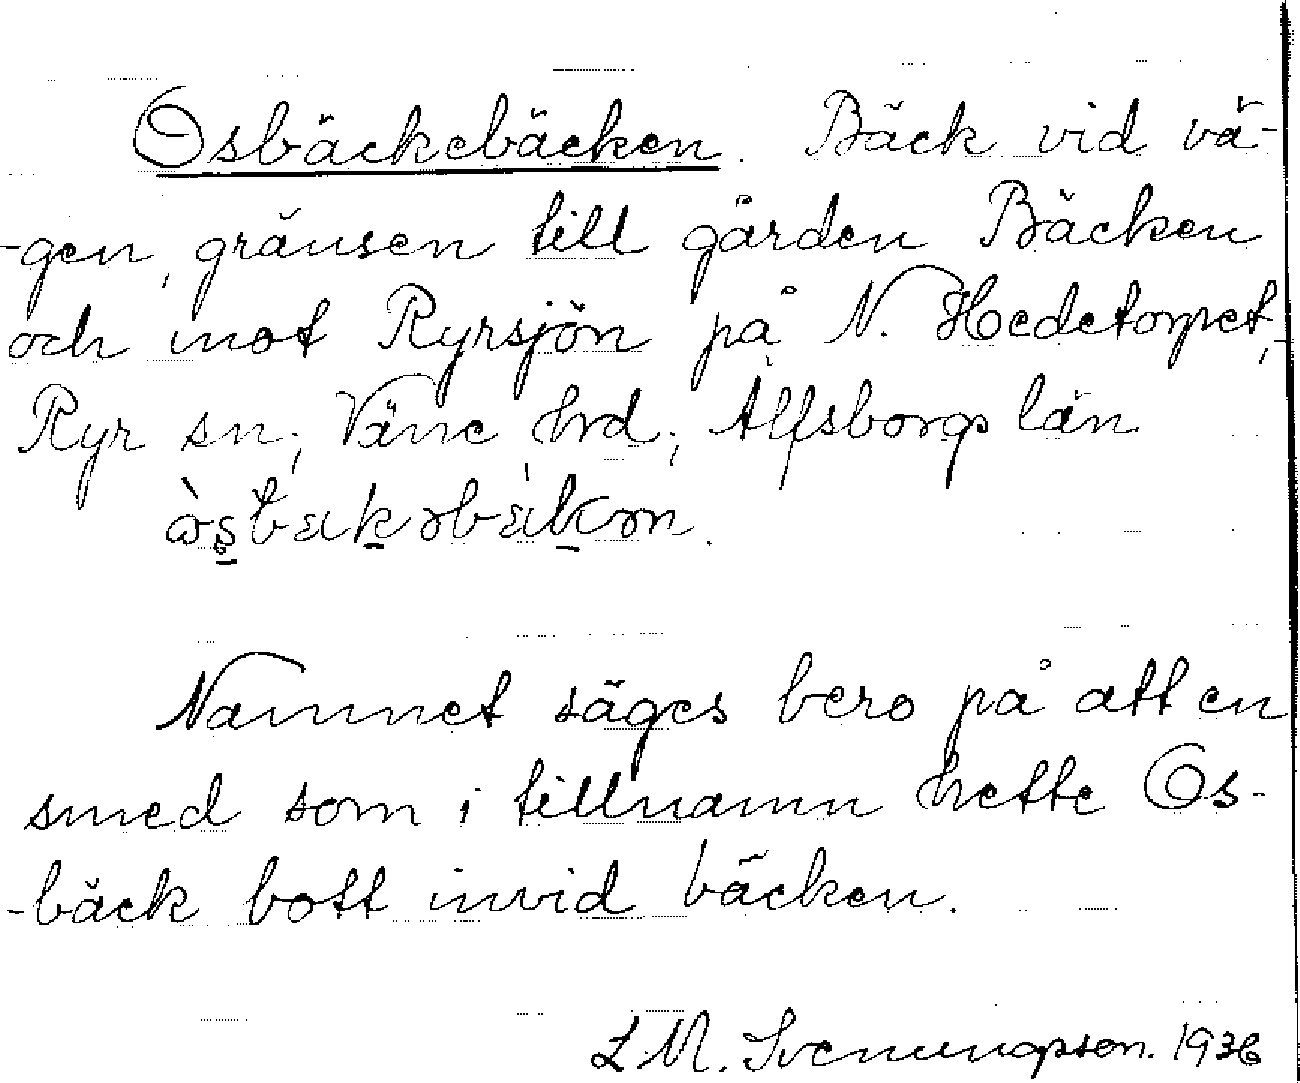 Osbäckebäcken. Bäck vid vä-
-gen, gränsen till gården Bäcken
och mot Ryrsjön på N. Hedetorpet,
Ryr sn; Väne hrd; Älfsborgs län
Namnet säges bero på att en
smed som i tillnamn hette Os-
-bäck bott invid bäcken.
L M. Svenungsson. 1936